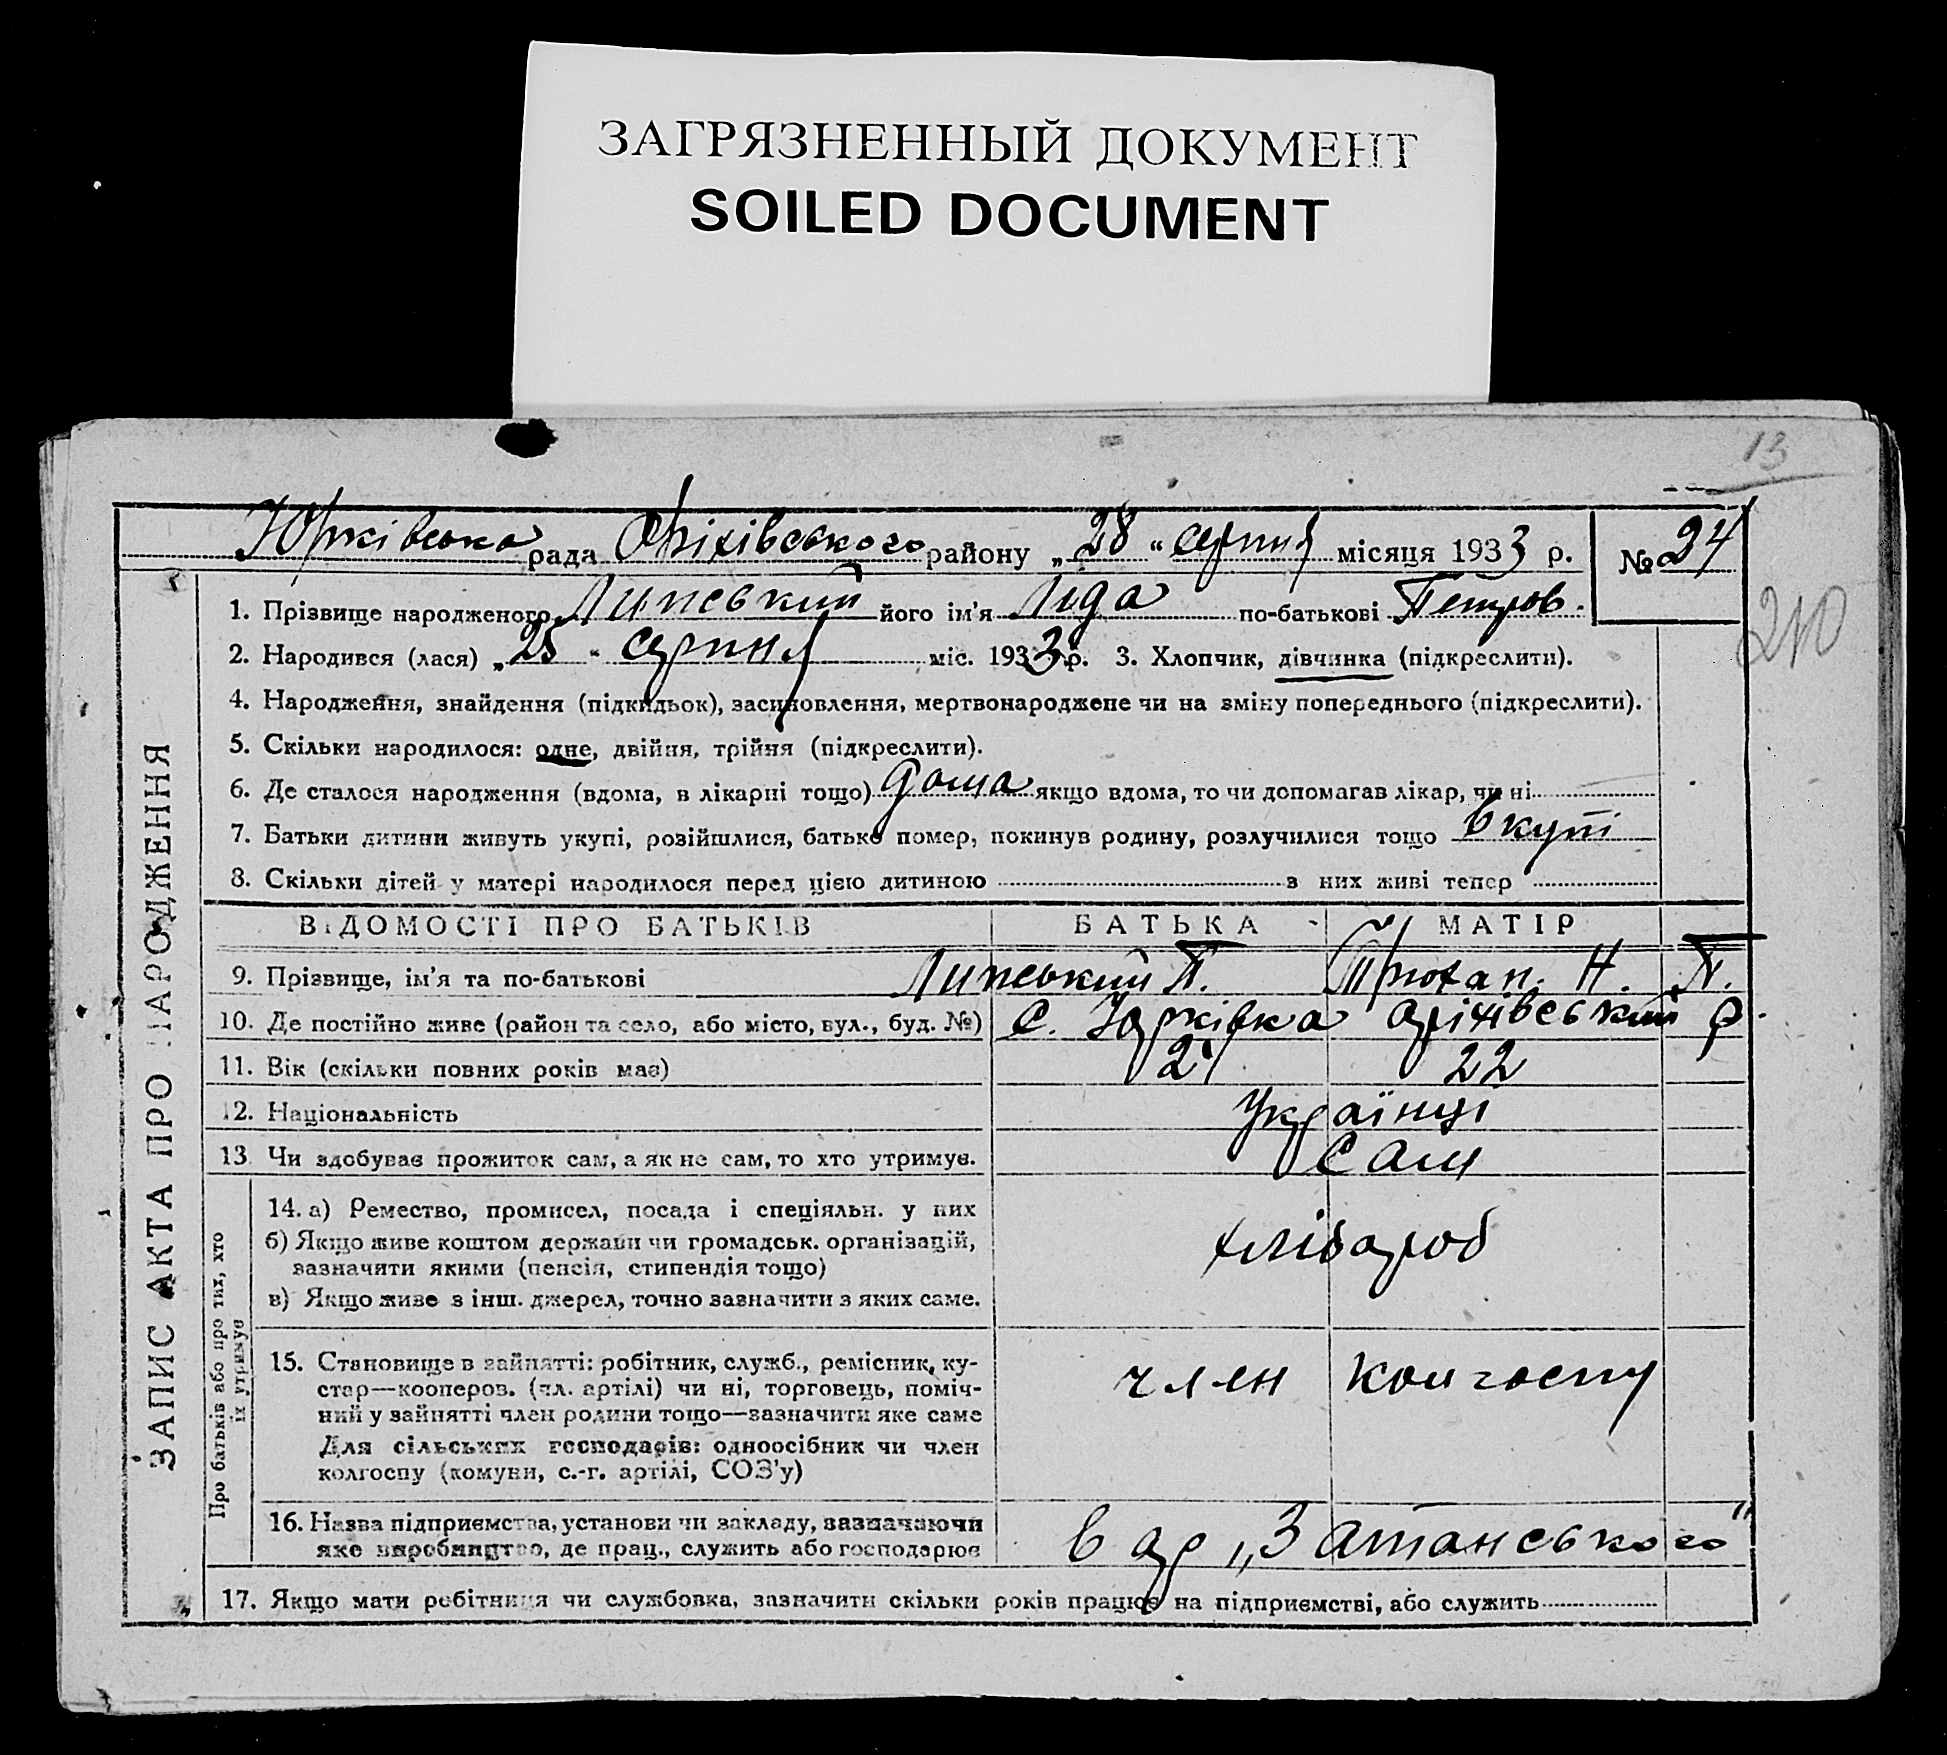 ЗАГРЯЗНЕННЫЙ ДОКУМЕНТ
SOILED DOCUMENT
13
Юрківська рада Оріхівського району „28“ серпня місяця 1933 р. № 24
210
1. Прізвище народженого Липський його ім'я Ліда по-батькові Петров.
2. Народився (лася) „25“ серпня міс. 1933 р. 3. Хлопчик, дівчинка (підкреслити).
4. Народження, знайдення (підкидьок), засиновлення, мертвонароджене чи на зміну попереднього (підкреслити).
5. Скільки народилося: одне, двійня, трійня (підкреслити).
6. Де сталося народження (вдома, в лікарні тощо) дома якщо вдома, то чи допомагав лікар, чи ні
7. Батьки дитини живуть укупі, розійшлися, батько помер, покинув родину, розлучилися тощо вкупі
8. Скільки дітей у матері народилося перед цією дитиною з них живі тепер
ВІДОМОСТІ ПРО БАТЬКІВ БАТЬКА МАТІР
9. Прізвище, ім'я та по-батькові Липський П. Трюхан. Н. П.
10. Де постійно живе (район та село, або місто, вул., буд. №) С. Юрківка Оріхівський р.
11. Вік (скільки повних років має) 21 22
12. Національність Українці
13. Чи здобуває прожиток сам, а як не сам, то хто утримує. Сам
14. а) Ремество, промисел, посада і спеціяльн. у них
б) Якщо живе коштом держави чи громадськ. організацій,
зазначити якими (пенсія, стипендія тощо)
в) Якщо живе з інш. джерел, точно зазначити з яких саме.
хлібороб
15. Становище в зайнятті: робітник, служб., ремісник, ку-
стар—кооперов. (чл. артілі) чи ні, торговець, поміч-
ний у зайнятті член родини тощо—зазначити яке саме
Для сільських господарів: одноосібник чи член
колгоспу (комуни, с.-г. артілі, СОЗ'у)
член колгоспу
16. Назва підприємства, установи чи закладу, зазначаючи
яке виробництво, де прац., служить або господарює
в ар „Затонського“
17. Якщо мати робітниця чи службовка, зазначити скільки років працює на підприємстві, або служить
ЗАПИС АКТА ПРО НАРОДЖЕННЯ
Про батьків або про тих, хто
їх утримує